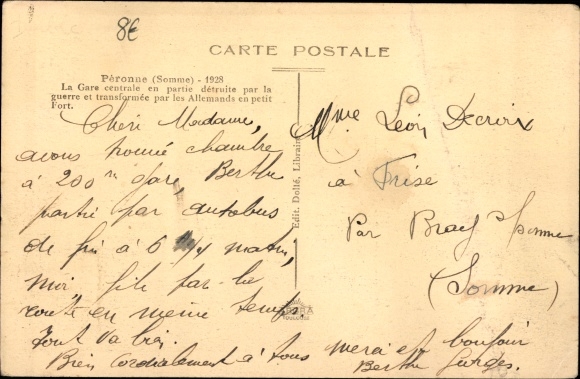 8€
CARTE POSTALE
Péronne (Somme) - 1928
La Gare centrale en partie détruite par la
guerre et transformée par les Allemands en petit
Fort.
Edit. Dolté, Libraire
Chère Madame,
avons trouvé chambre
à 200 m gare, Berthe
partie par autobus
de à 6 matin,
moi, file par la
route en même temps
Tout va bien.
Bien cordialement à tous merci et bonjour
Berthe
Mme Léon Decroix
à Frise
Par Bray s/ Somme
(Somme)